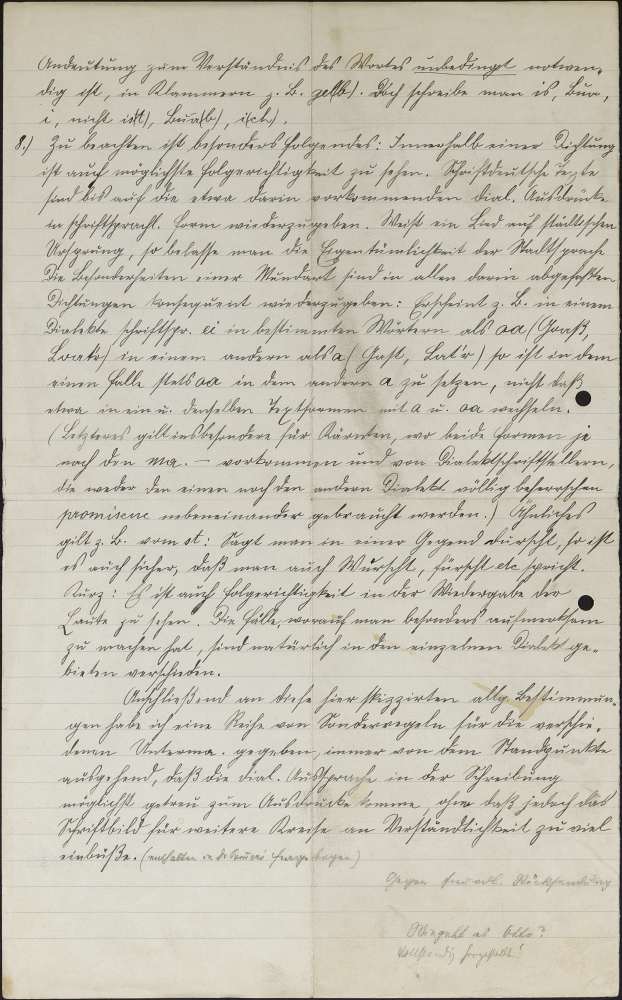 Andeutung zum Verständnis des Wortes unbedingt notwen-
dig ist, in Klammern z. B. gel(b). Doch schreibe man is, Bua,
i, nicht is(t), Bua(b), i(ch).
8.) Zu beachten ist besonders folgendes: Innerhalb einer Dichtung
ist auch möglichste Folgerichtigkeit zu sehen. Schriftdeutsche Texte
sind bis auf die etwa darin vorkommenden dial. Ausdrücke
in schriftsprachl. Form wiederzugeben. Weist ein Lied auf städtischen
Ursprung, so belasse man die Eigentümlichkeit der Stadtsprache
Die Besonderheiten einer Mundart sind in allen darin abgefaßten
Dichtungen konsequent wiederzugeben: Erscheint z. B. in einem
Dialekte schriftspr. ei in bestimmten Wörtern als oa (Goaß,
Loatr) in einem andern als a (Gaß, Latr) so ist in dem
einen Falle stets oa in dem andern a zu setzen, nicht daß
etwa in ein u. denselben Textformen mit a u. oa wechseln.
(Letzteres gilt insbesondere für Kärnten, wo beide Formen je
nach den Ma. – vorkommen und von Dialektschriftstellern,
die weder den einen noch den andern Dialekt völlig beherrschen
promiscue nebeneinander gebraucht werden.) Ähnliches
gilt z. B. vom st: Sagt man in einer Gegend Durscht, so ist
es auch sicher, daß man auch Wurscht, fürscht etc spricht.
Kurz: Es ist auch Folgerichtigkeit in der Wiedergabe der
Laute zu sehen. Die Fälle, worauf man besonders aufmerksam
zu machen hat, sind natürlich in den einzelnen Dialekt ge-
bieten verschieden.
Anschließend an diese hier skizzirten allg. Bestimmun-
gen habe ich eine Reihe von Sonderregeln für die verschie-
denen Unterma. gegeben, immer von dem Standpunkte
ausgehend, daß die dial. Aussprache in der Schreibung
möglichst getreu zum Ausdrucke komme, ohne daß jedoch das
Schriftbild für weitere Kreise an Verständlichkeit zu viel
einbüße. (enthalten in Fragebogen)
Gegen Rücksendung